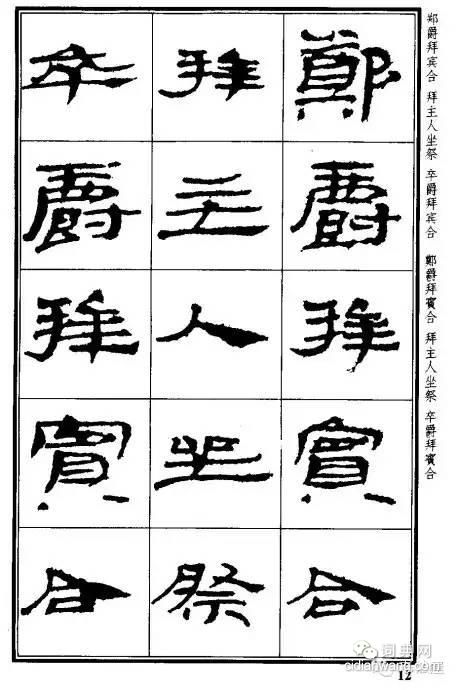 鄭爵拜賓合
拜主人坐祭
卒爵拜賓合
郑爵拜宾合 拜主人坐祭 卒爵拜宾合 鄭爵拜賓合 拜主人坐祭 卒爵拜賓合
词典网
cidianwang.com
12